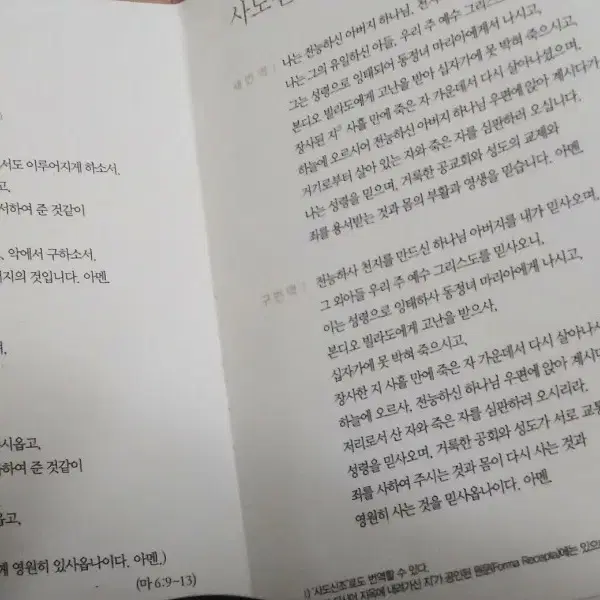 서도 이루어지게 하소서.
고,
서하여 준 것같이
악에서 구하소서.
지의 것입니다. 아멘.
시옵고,
하여 준 것같이
옵고,
영원히 있사옵나이다. 아멘.)
(마 6:9~13)
사도신
새번역
나는 전능하신 아버지 하나님, 천지
나는 그의 유일하신 아들, 우리 주 예수 그리스
그는 성령으로 잉태되어 동정녀 마리아에게서 나시고,
본디오 빌라도에게 고난을 받아 십자가에 못 박혀 죽으시고,
장사된 지 사흘 만에 죽은 자 가운데서 다시 살아나셨으며,
하늘에 오르시어 전능하신 아버지 하나님 우편에 앉아 계시다가
거기로부터 살아 있는 자와 죽은 자를 심판하러 오십니다.
나는 성령을 믿으며, 거룩한 공교회와 성도의 교제와
죄를 용서받는 것과 몸의 부활과 영생을 믿습니다. 아멘.
구번역
전능하사 천지를 만드신 하나님 아버지를 내가 믿사오며,
그 외아들 우리 주 예수 그리스도를 믿사오니,
이는 성령으로 잉태하사 동정녀 마리아에게 나시고,
본디오 빌라도에게 고난을 받으사,
십자가에 못 박혀 죽으시고,
장사한 지 사흘 만에 죽은 자 가운데서 다시 살아나시
하늘에 오르사, 전능하신 하나님 우편에 앉아 계시다
저리로서 산 자와 죽은 자를 심판하러 오시리라.
성령을 믿사오며, 거룩한 공회와 성도가 서로 교통
죄를 사하여 주시는 것과 몸이 다시 사는 것과
영원히 사는 것을 믿사옵나이다. 아멘.
1) '사도신조'로도 번역할 수 있다.
지옥에 내려가신 지'가 공인된 원문(Forma Recepta)에는 있으